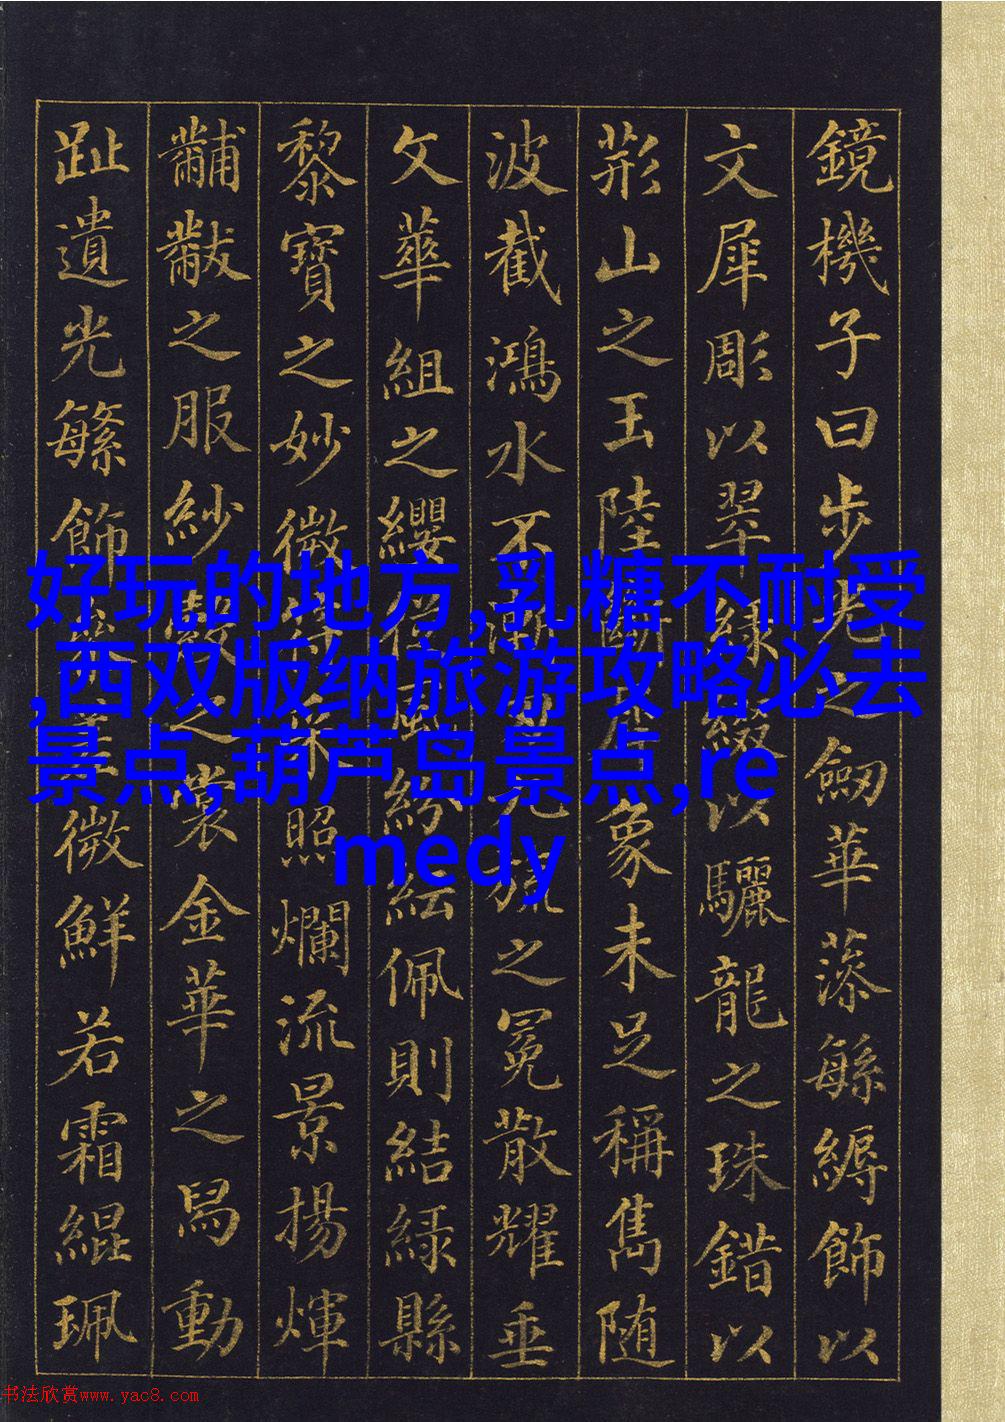 鏡機子曰步光之劒華藻緐縟飾以
文犀彫以翠綠綴以驪龍之珠錯以
荆山之玉陸斷犀象未足稱雋随
波截鴻水不漸刃九旒之冕散耀垂
文華組之纓從風紛紜佩則結緑縣
黎寶之妙微符采照爛流景揚煇
黼黻之服紗縠之裳金華之舄動
趾遺光繁飾參差微鮮若霜緄珮
好玩的地方,乳糖不耐受
,西双版纳旅游攻略必去
景点,葫芦岛景点,re
medy
书法欣赏www.yac8.com